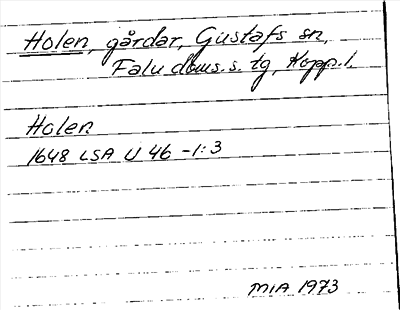 Holen, gårdar, Gustafs sn,
Falu doms. s. tg, Kopp. l.
Holen
1648 LSA U 46 -1:3
MIA 1973